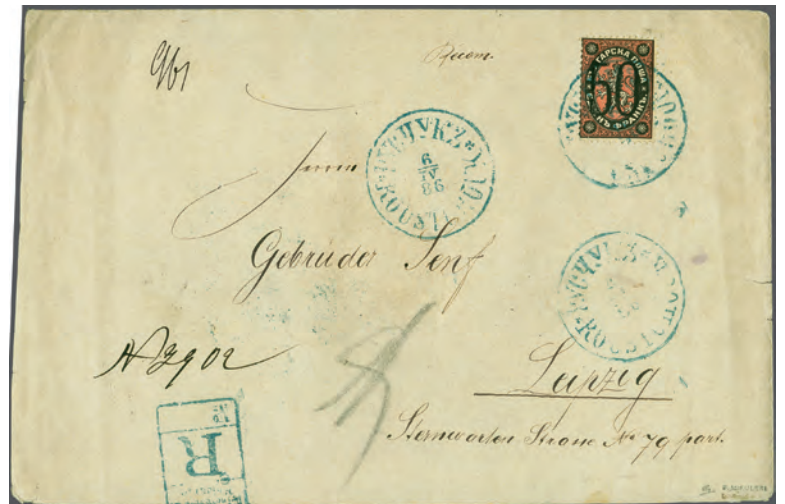 961
Recom.
БЪЛГАРСКА ПОЩА
50
ЕДИНЪ ФРАНКЪ
РУСЧУКЪ
6
IV
86
ROUSTCHOUK
Herrn
Gebrüder Senf
РУСЧУКЪ
ROUSTCHOUK
N 2902
Leipzig
R
Sternwarten Strasse No 79 part.